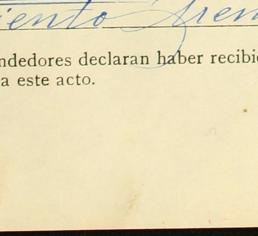 iento Aren
ndedores declaran haber recibi
a este acto.